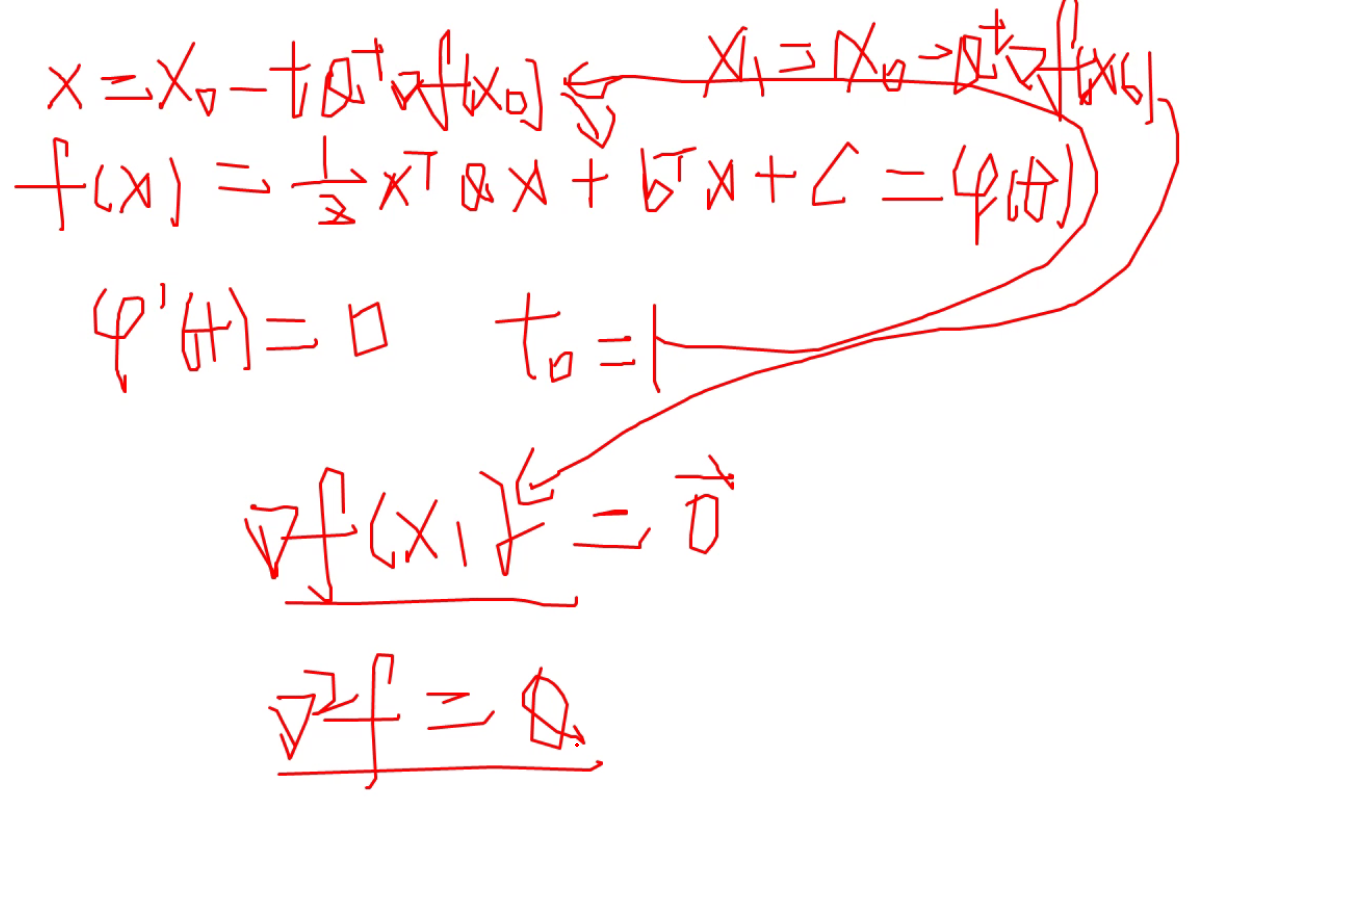 x = x₀ - tQ⁻¹∇f(x₀) x₁ = x₀ - Q⁻¹∇f(x₀)
f(x) = 1/2 xᵀQx + bᵀx + c = φ(t)
φ'(t) = 0 t₀ = 1
∇f(x₁) = 0⃗
∇²f = Q